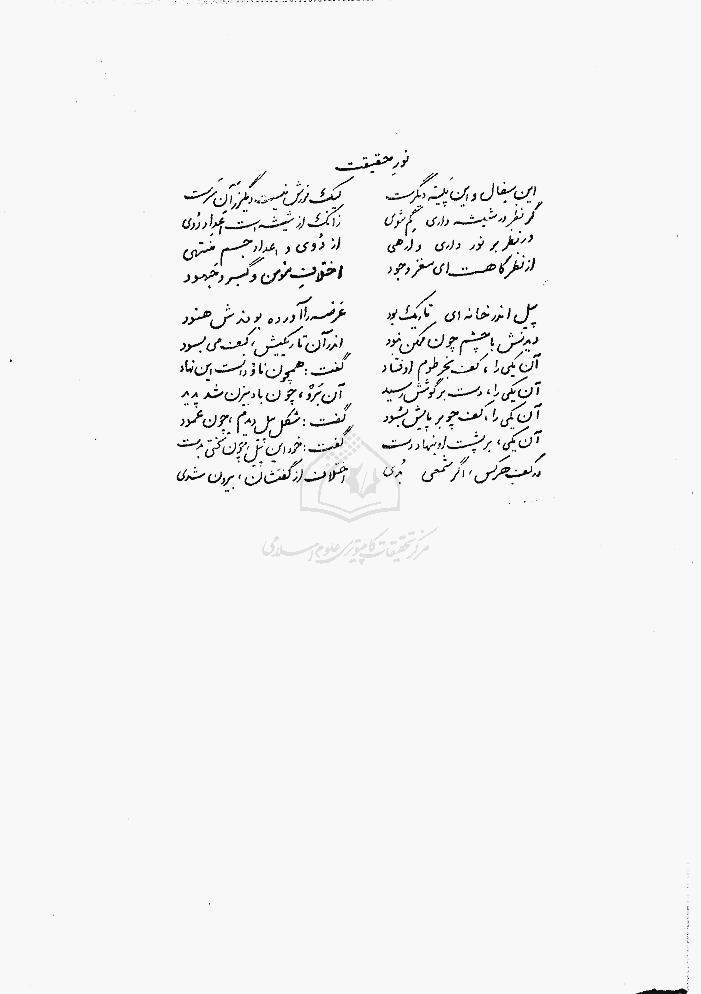 نورِ حقیقت
این سفال و این پلیته دیگرست لیک نورش نیست دیگر زآن سرست
گر نظر در شیشه داری گم شوی زانک از شیشه ست اعداد دُوی
ور نظر بر نور داری وارهی از دُوی و اعدادِ جسم منتهی
از نظرگاهست ای مغز وجود اختلافِ مؤمن و گبر و جهود
پیل اندر خانه ای تاریک بود عَرضه را آورده بودندش هنود
دیدنش با چشم چون ممکن نبود اندر آن تاریکیش، کف می بسود
آن یکی را، کف بخرطوم اوفتاد گفت: همچون ناودانست این نهاد
آن یکی را، دست بر گوشش رسید آن بَرُو، چون بادبیزن شد پدید
آن یکی را، کف چو بر پایش بسود گفت: شکل پیل دیدم، چون عمود
آن یکی، بر پشت او بنهاد دست گفت: خود این پیل، چون تختی بدست
در کف هر کس، اگر شمعی بُدی اختلاف از گفتشان، بیرون شدی
مرکز تحقیقات کامپیوتری علوم اسلامی